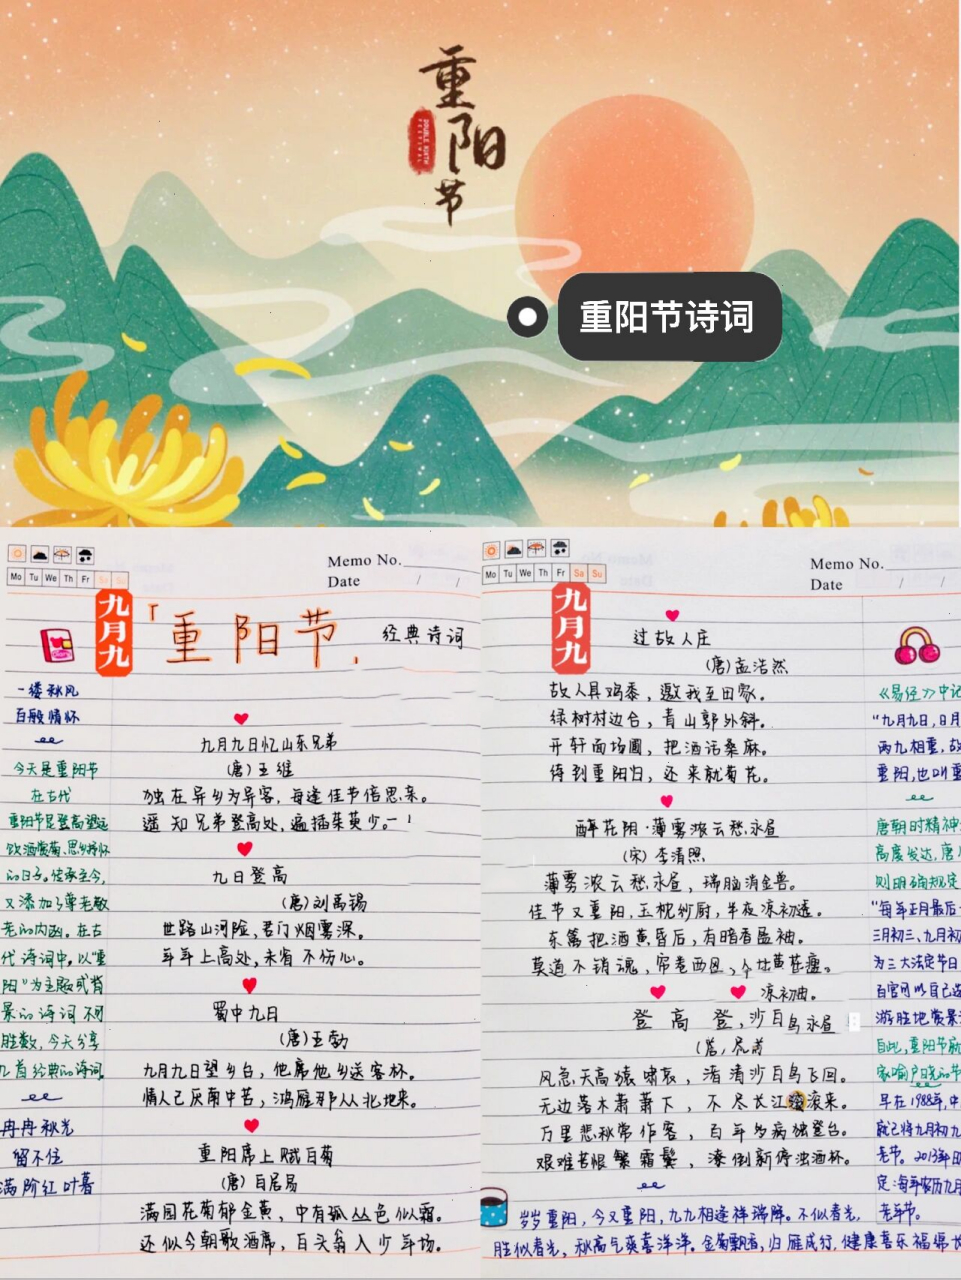 重
阳
节
DOUBLE NINTH
FESTIVAL
重阳节诗词
Memo No.
Date / /
Mo Tu We Th Fr Sa Su
九月九
「重阳节」
经典诗词
一缕秋风
百般情怀
今天是重阳节
在古代
重阳节是登高望远
饮酒赏菊、思乡抒怀
的日子。传承至今,
又添加了尊老敬
老的内涵。在古
代诗词中,以"重
阳"为主题或背
景的诗词不可
胜数,今天分享
九首经典的诗词
冉冉秋光
留不住
满阶红叶暮
九月九日忆山东兄弟
(唐)王维
独在异乡为异客,每逢佳节倍思亲。
遥知兄弟登高处,遍插茱萸少一
九日登高
(唐)刘禹锡
世路山河险,君门烟雾深。
年年上高处,未省不伤心。
蜀中九日
(唐)王勃
九月九日望乡台,他席他乡送客杯。
情人已厌南中苦,鸿雁那从北地来。
重阳席上赋白菊
(唐)白居易
满园花菊郁金黄,中有孤丛色似霜。
还似今朝歌酒席,白头翁入少年场。
Memo No.
Date / /
Mo Tu We Th Fr Sa Su
九月九
过故人庄
(唐)孟浩然
故人具鸡黍,邀我至田家。
绿树村边合,青山郭外斜。
开轩面场圃,把酒话桑麻。
待到重阳日,还来就菊花。
醉花阴·薄雾浓云愁永昼
(宋)李清照
薄雾浓云愁永昼,瑞脑消金兽。
佳节又重阳,玉枕纱厨,半夜凉初透。
东篱把酒黄昏后,有暗香盈袖。
莫道不销魂,帘卷西风,个比黄花瘦。
凉初
登高 登,沙白鸟永昼
(唐)
风急天高猿啸哀,渚清沙白鸟飞回。
无边落木萧萧下,不尽长江滚滚来。
万里悲秋常作客,百年多病独登台。
艰难苦恨繁霜鬓,潦倒新停浊酒杯。
《易经》中记
"九月九日,日月
两九相重,故
重阳,也叫重
唐朝时精神
高度发达,唐
则明确规定
"每年正月最后一
三月初三、九月初
为三大法定节日
百官可以自己选
游胜地赏景
自此,重阳节就
家喻户晓的节
早在1988年,中
就已将九月初九
老节。2013年
定:每年农历九月
老年节。
岁岁重阳,今又重阳,九九相逢祥瑞降。不似春光,
胜似春光,秋高气爽喜洋洋。金菊飘香,归雁成行,健康喜乐福绵长